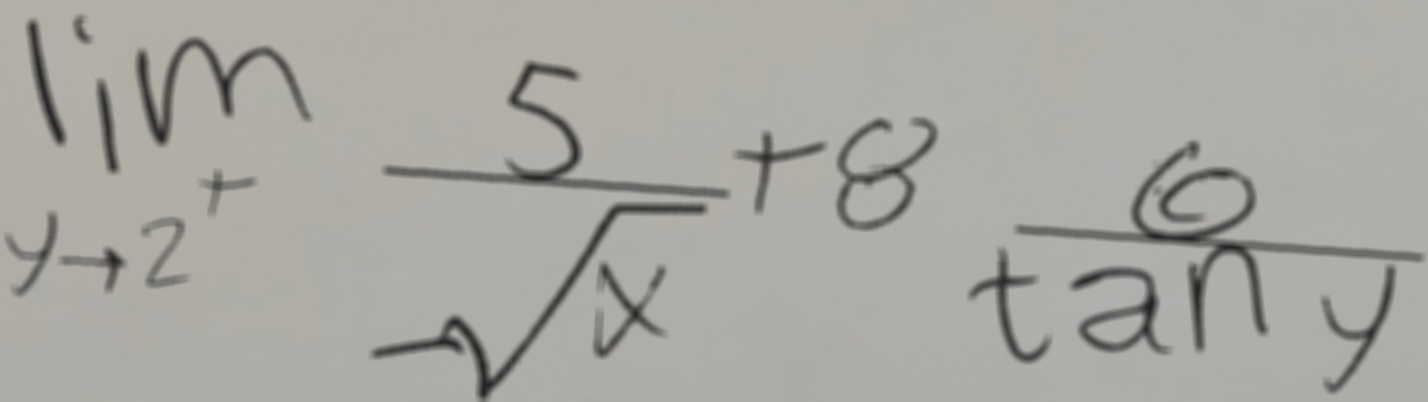 \lim_{y \to 2^+} \frac{5}{\sqrt{x}} + 8 \frac{6}{\tan y}